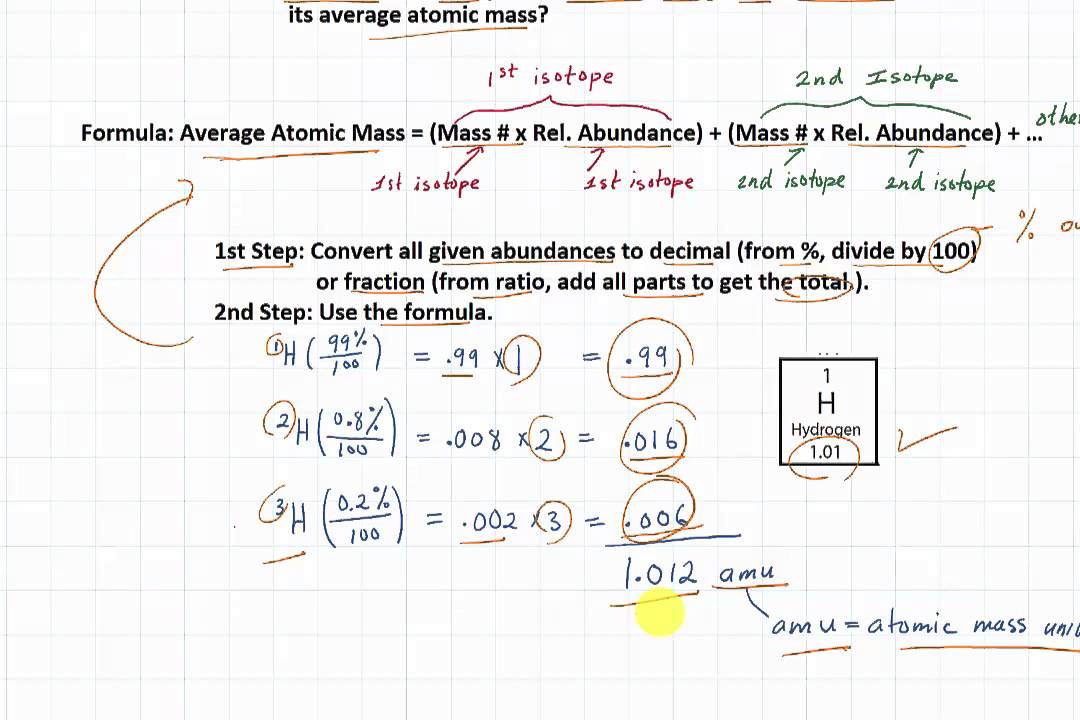 its average atomic mass?
1st isotope 2nd Isotope
Formula: Average Atomic Mass = (Mass # x Rel. Abundance) + (Mass # x Rel. Abundance) + ...
1st isotope 1st isotope 2nd isotope 2nd isotope
1st Step: Convert all given abundances to decimal (from %, divide by 100) %
or fraction (from ratio, add all parts to get the total.).
2nd Step: Use the formula.
¹H (99%/100) = .99 x 1 = .99
²H (0.8%/100) = .008 x 2 = .016
³H (0.2%/100) = .002 x 3 = .006
1.012 amu
amu = atomic mass
...
1
H
Hydrogen
1.01